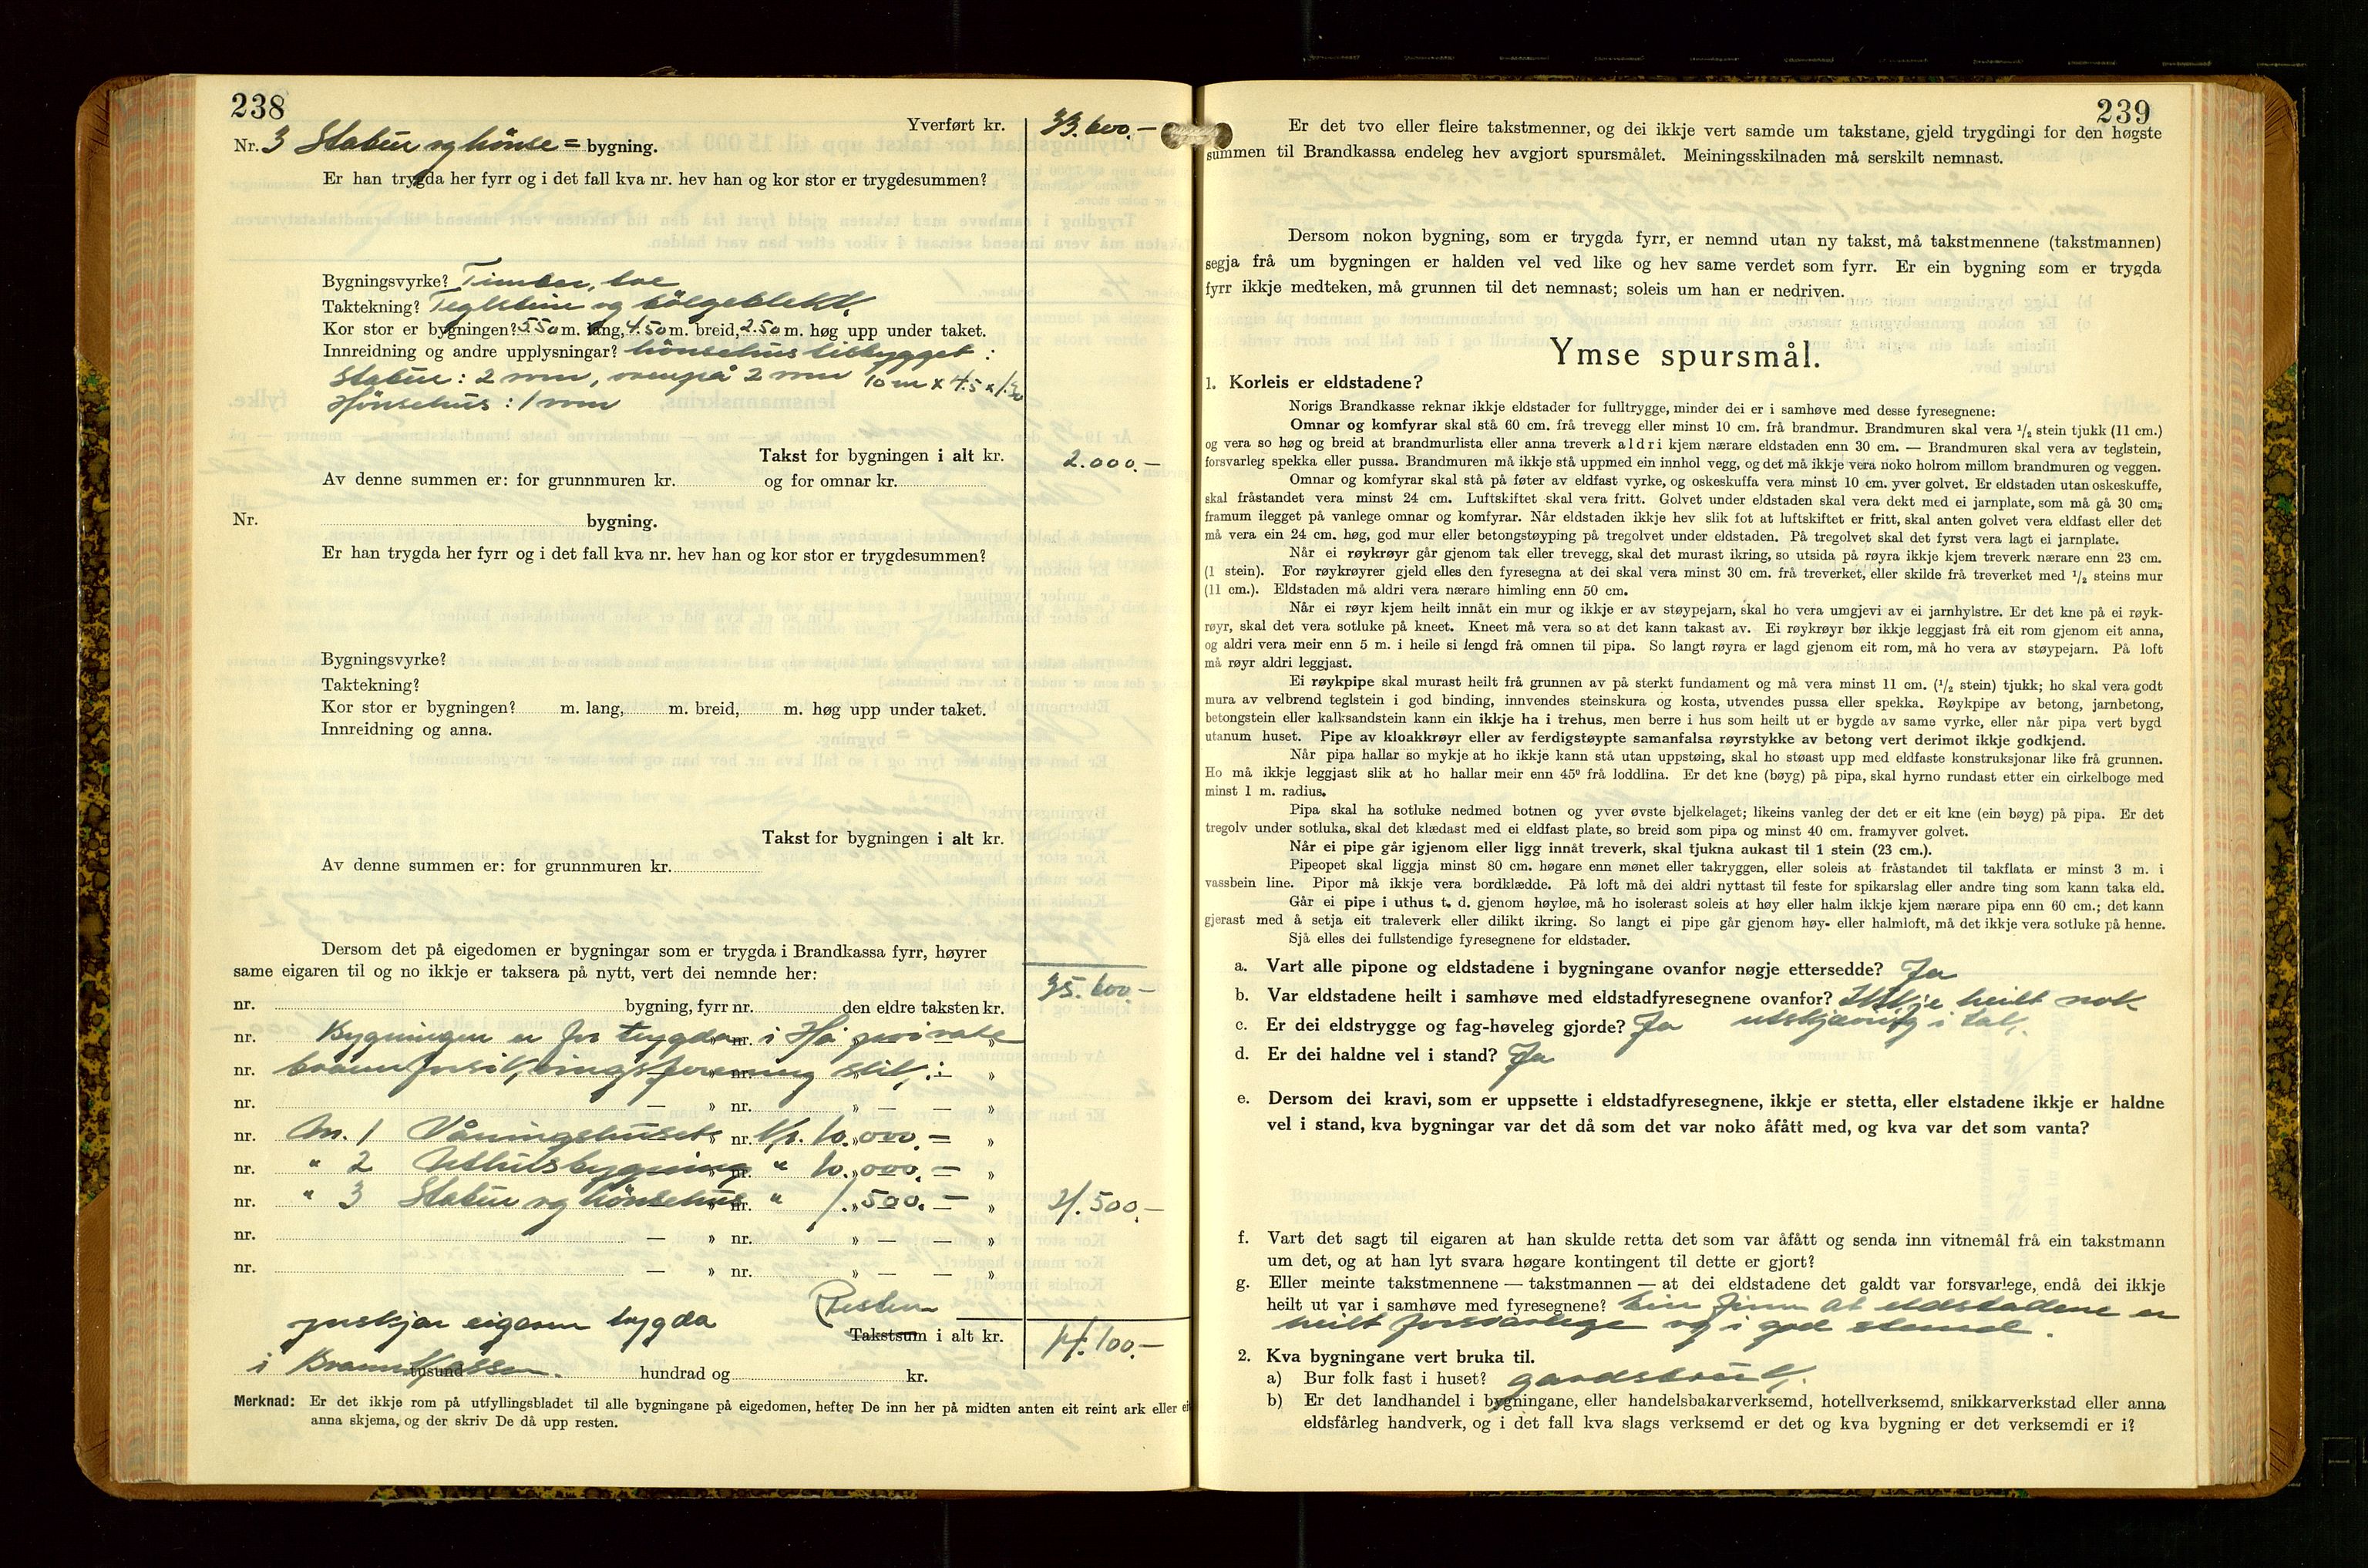 238
Yverført kr. 33.600.-
Nr. 3 Stabur og hönse= bygning.
Er han trygda her fyrr og i det fall kva nr. hev han og kor stor er trygdesummen?
Bygningsvyrke? Timber, 
Taktekning? Teglstein og bölgeblekk.
Kor stor er bygningen? 5.50 m. lang, 4.50 m. breid, 2.50 m. høg upp under taket.
Innreidning og andre upplysningar? hönsehus tilbygget:
Stabur: 2 rom, ovenpå 2 rom 10 m x 4.5 x
Hönsehus: 1 rom
Takst for bygningen i alt kr. 2.000.-
Av denne summen er: for grunnmuren kr. og for omnar kr.
Nr. bygning.
Er han trygda her fyrr og i det fall kva nr. hev han og kor stor er trygdesummen?
Bygningsvyrke?
Taktekning?
Kor stor er bygningen? m. lang, m. breid, m. høg upp under taket.
Innreidning og anna.
Takst for bygningen i alt kr.
Av denne summen er: for grunnmuren kr.
Dersom det på eigedomen er bygningar som er trygda i Brandkassa fyrr, høyrer
same eigaren til og no ikkje er taksera på nytt, vert dei nemnde her:
35.600.-
nr. bygning, fyrr nr. den eldre taksten kr.
nr. Bygningen er för trygda nr. i Hå private
nr. brannforsikringsforening slik:
nr. — » nr. » — — »
nr. Nr. 1 Våningshuset nr. kr. 10.000.- »
nr. " 2 Uthusbygning nr. " 10.000.- »
nr. " 3 Stabur og hönsehus nr. " 1.500.- » 21.500.-
nr. — » nr. » — — »
nr. — » nr. » — — »
Resten
ynskjer eigaren trygda
Takstsum i alt kr. 14.100.-
i Brannkassen. tusund hundrad og kr.
Merknad: Er det ikkje rom på utfyllingsbladet til alle bygningane på eigedomen, hefter De inn her på midten anten eit reint ark eller
anna skjema, og der skriv De då upp resten.
239
Er det tvo eller fleire takstmenner, og dei ikkje vert samde um takstane, gjeld trygdingi for den høgste
summen til Brandkassa endeleg hev avgjort spursmålet. Meiningsskilnaden må serskilt nemnast.
Dersom nokon bygning, som er trygda fyrr, er nemnd utan ny takst, må takstmennene (takstmannen)
segja frå um bygningen er halden vel ved like og hev same verdet som fyrr. Er ein bygning som er trygda
fyrr ikkje medteken, må grunnen til det nemnast; soleis um han er nedriven.
Ymse spursmål.
1. Korleis er eldstadene?
Norigs Brandkasse reknar ikkje eldstader for fulltrygge, minder dei er i samhøve med desse fyresegnene:
Omnar og komfyrar skal stå 60 cm. frå trevegg eller minst 10 cm. frå brandmur. Brandmuren skal vera ½ stein tjukk (11 cm.)
og vera so høg og breid at brandmurlista eller anna treverk aldri kjem nærare eldstaden enn 30 cm. — Brandmuren skal vera av teglstein,
forsvarleg spekka eller pussa. Brandmuren må ikkje stå uppmed ein innhol vegg, og det må ikkje vera noko holrom millom brandmuren og veggen.
Omnar og komfyrar skal stå på føter av eldfast vyrke, og oskeskuffa vera minst 10 cm. yver golvet. Er eldstaden utan oskeskuffe,
skal fråstandet vera minst 24 cm. Luftskiftet skal vera fritt. Golvet under eldstaden skal vera dekt med ei jarnplate, som må gå 30 cm.
framum ilegget på vanlege omnar og komfyrar. Når eldstaden ikkje hev slik fot at luftskiftet er fritt, skal anten golvet vera eldfast eller det
må vera ein 24 cm. høg, god mur eller betongstøyping på tregolvet under eldstaden. På tregolvet skal det fyrst vera lagt ei jarnplate.
Når ei røykrøyr går gjenom tak eller trevegg, skal det murast ikring, so utsida på røyra ikkje kjem treverk nærare enn 23 cm.
(1 stein). For røykrøyrer gjeld elles den fyresegna at dei skal vera minst 30 cm. frå treverket, eller skilde frå treverket med ½ steins mur
(11 cm.). Eldstaden må aldri vera nærare himling enn 50 cm.
Når ei røyr kjem heilt innåt ein mur og ikkje er av støypejarn, skal ho vera umgjevi av ei jarnhylstre. Er det kne på ei røyk-
røyr, skal det vera sotluke på kneet. Kneet må vera so at det kann takast av. Ei røykrøyr bør ikkje leggjast frå eit rom gjenom eit anna,
og aldri vera meir enn 5 m. i heile si lengd frå omnen til pipa. So langt røyra er lagd gjenom eit rom, må ho vera av støypejarn. På loft
må røyr aldri leggjast.
Ei røykpipe skal murast heilt frå grunnen av på sterkt fundament og må vera minst 11 cm. (½ stein) tjukk; ho skal vera godt
mura av velbrend teglstein i god binding, innvendes steinskura og kosta, utvendes pussa eller spekka. Røykpipe av betong, jarnbetong,
betongstein eller kalksandstein kann ein ikkje ha i trehus, men berre i hus som heilt ut er bygde av same vyrke, eller når pipa vert bygd
utanum huset. Pipe av kloakkrøyr eller av ferdigstøypte samanfalsa røyrstykke av betong vert derimot ikkje godkjend.
Når pipa hallar so mykje at ho ikkje kann stå utan uppstøing, skal ho støast upp med eldfaste konstruksjonar like frå grunnen.
Ho må ikkje leggjast slik at ho hallar meir enn 45° frå loddlina. Er det kne (bøyg) på pipa, skal hyrno rundast etter ein cirkelboge med
minst 1 m. radius.
Pipa skal ha sotluke nedmed botnen og yver øvste bjelkelaget; likeins vanleg der det er eit kne (ein bøyg) på pipa. Er det
tregolv under sotluka, skal det klædast med ei eldfast plate, so breid som pipa og minst 40 cm. framyver golvet.
Når ei pipe går igjenom eller ligg innåt treverk, skal tjukna aukast til 1 stein (23 cm.).
Pipeopet skal liggja minst 80 cm. høgare enn mønet eller takryggen, eller soleis at fråstandet til takflata er minst 3 m. i
vassbein line. Pipor må ikkje vera bordklædde. På loft må dei aldri nyttast til feste for spikarslag eller andre ting som kann taka eld.
Går ei pipe i uthus t. d. gjenom høyløe, må ho isolerast soleis at høy eller halm ikkje kjem nærare pipa enn 60 cm.; det kann
gjerast med å setja eit traleverk eller dilikt ikring. So langt ei pipe går gjenom høy- eller halmloft, må det ikkje vera sotluke på henne.
Sjå elles dei fullstendige fyresegnene for eldstader.
a. Vart alle pipone og eldstadene i bygningane ovanfor nøgje ettersedde? Ja
b. Var eldstadene heilt i samhøve med eldstadfyresegnene ovanfor? Ikkje heilt nok
c. Er dei eldstrygge og fag-høveleg gjorde? Ja utskjæring i tak.
d. Er dei haldne vel i stand? Ja
e. Dersom dei kravi, som er uppsette i eldstadfyresegnene, ikkje er stetta, eller elstadene ikkje er haldne
vel i stand, kva bygningar var det då som det var noko åfått med, og kva var det som vanta?
f. Vart det sagt til eigaren at han skulde retta det som var åfått og senda inn vitnemål frå ein takstmann
um det, og at han lyt svara høgare kontingent til dette er gjort?
g. Eller meinte takstmennene — takstmannen — at dei eldstadene det galdt var forsvarlege, endå dei ikkje
heilt ut var i samhøve med fyresegnene? Ein finn at eldstadene er
heilt forsvarlege og i god stand.
2. Kva bygningane vert bruka til.
a) Bur folk fast i huset? gardsbruk.
b) Er det landhandel i bygningane, eller handelsbakarverksemd, hotellverksemd, snikkarverkstad eller anna
eldsfårleg handverk, og i det fall kva slags verksemd er det og kva bygning er det verksemdi er i?